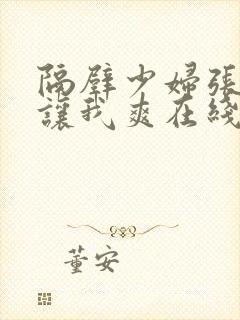 隔壁少婦張
讓我爽在綫
董安